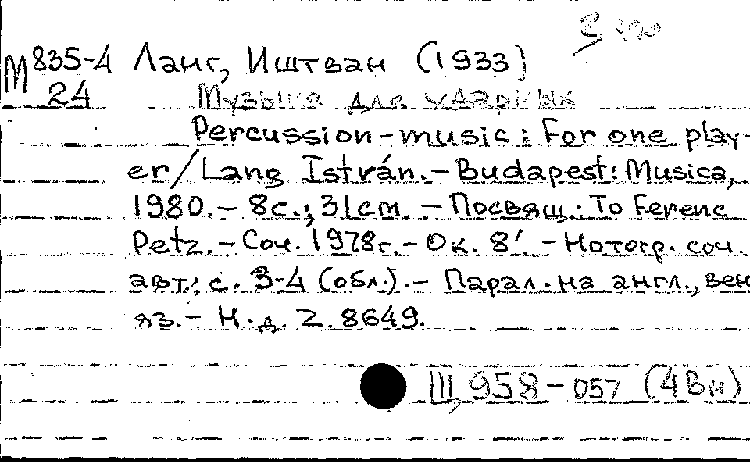 М 835-4 Ланг, Иштван (1933)
24 Музыка для ударных
Percussion-music: For one play-
er/Lang István.-Budapest: Musica,
1980.-8с.; 31см. -Посвящ.: To Ferenc
Petz.-Соч. 1978г.-Ок. 8'.-Нотогр. соч.
авт.: с. 3-4 (обл.).- Парал. на англ., вен
яз.- Н.д. Z. 8649.
III, 958-057 (4Вн)